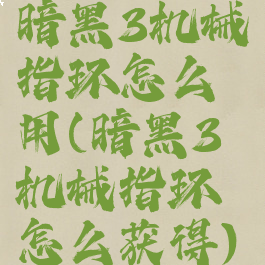 暗黑3机械
指环怎么
用(暗黑3
机械指环
怎么获得)